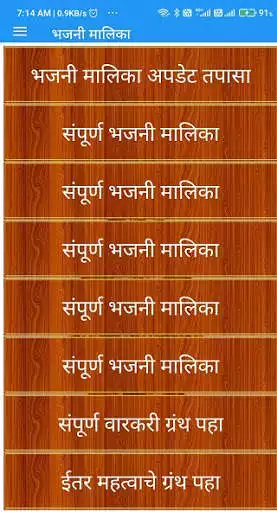 7:14 AM | 0.9KB/s ... 91%
भजनी मालिका
भजनी मालिका अपडेट तपासा
संपूर्ण भजनी मालिका
संपूर्ण भजनी मालिका
संपूर्ण भजनी मालिका
संपूर्ण भजनी मालिका
संपूर्ण भजनी मालिका
संपूर्ण वारकरी ग्रंथ पहा
ईतर महत्वाचे ग्रंथ पहा